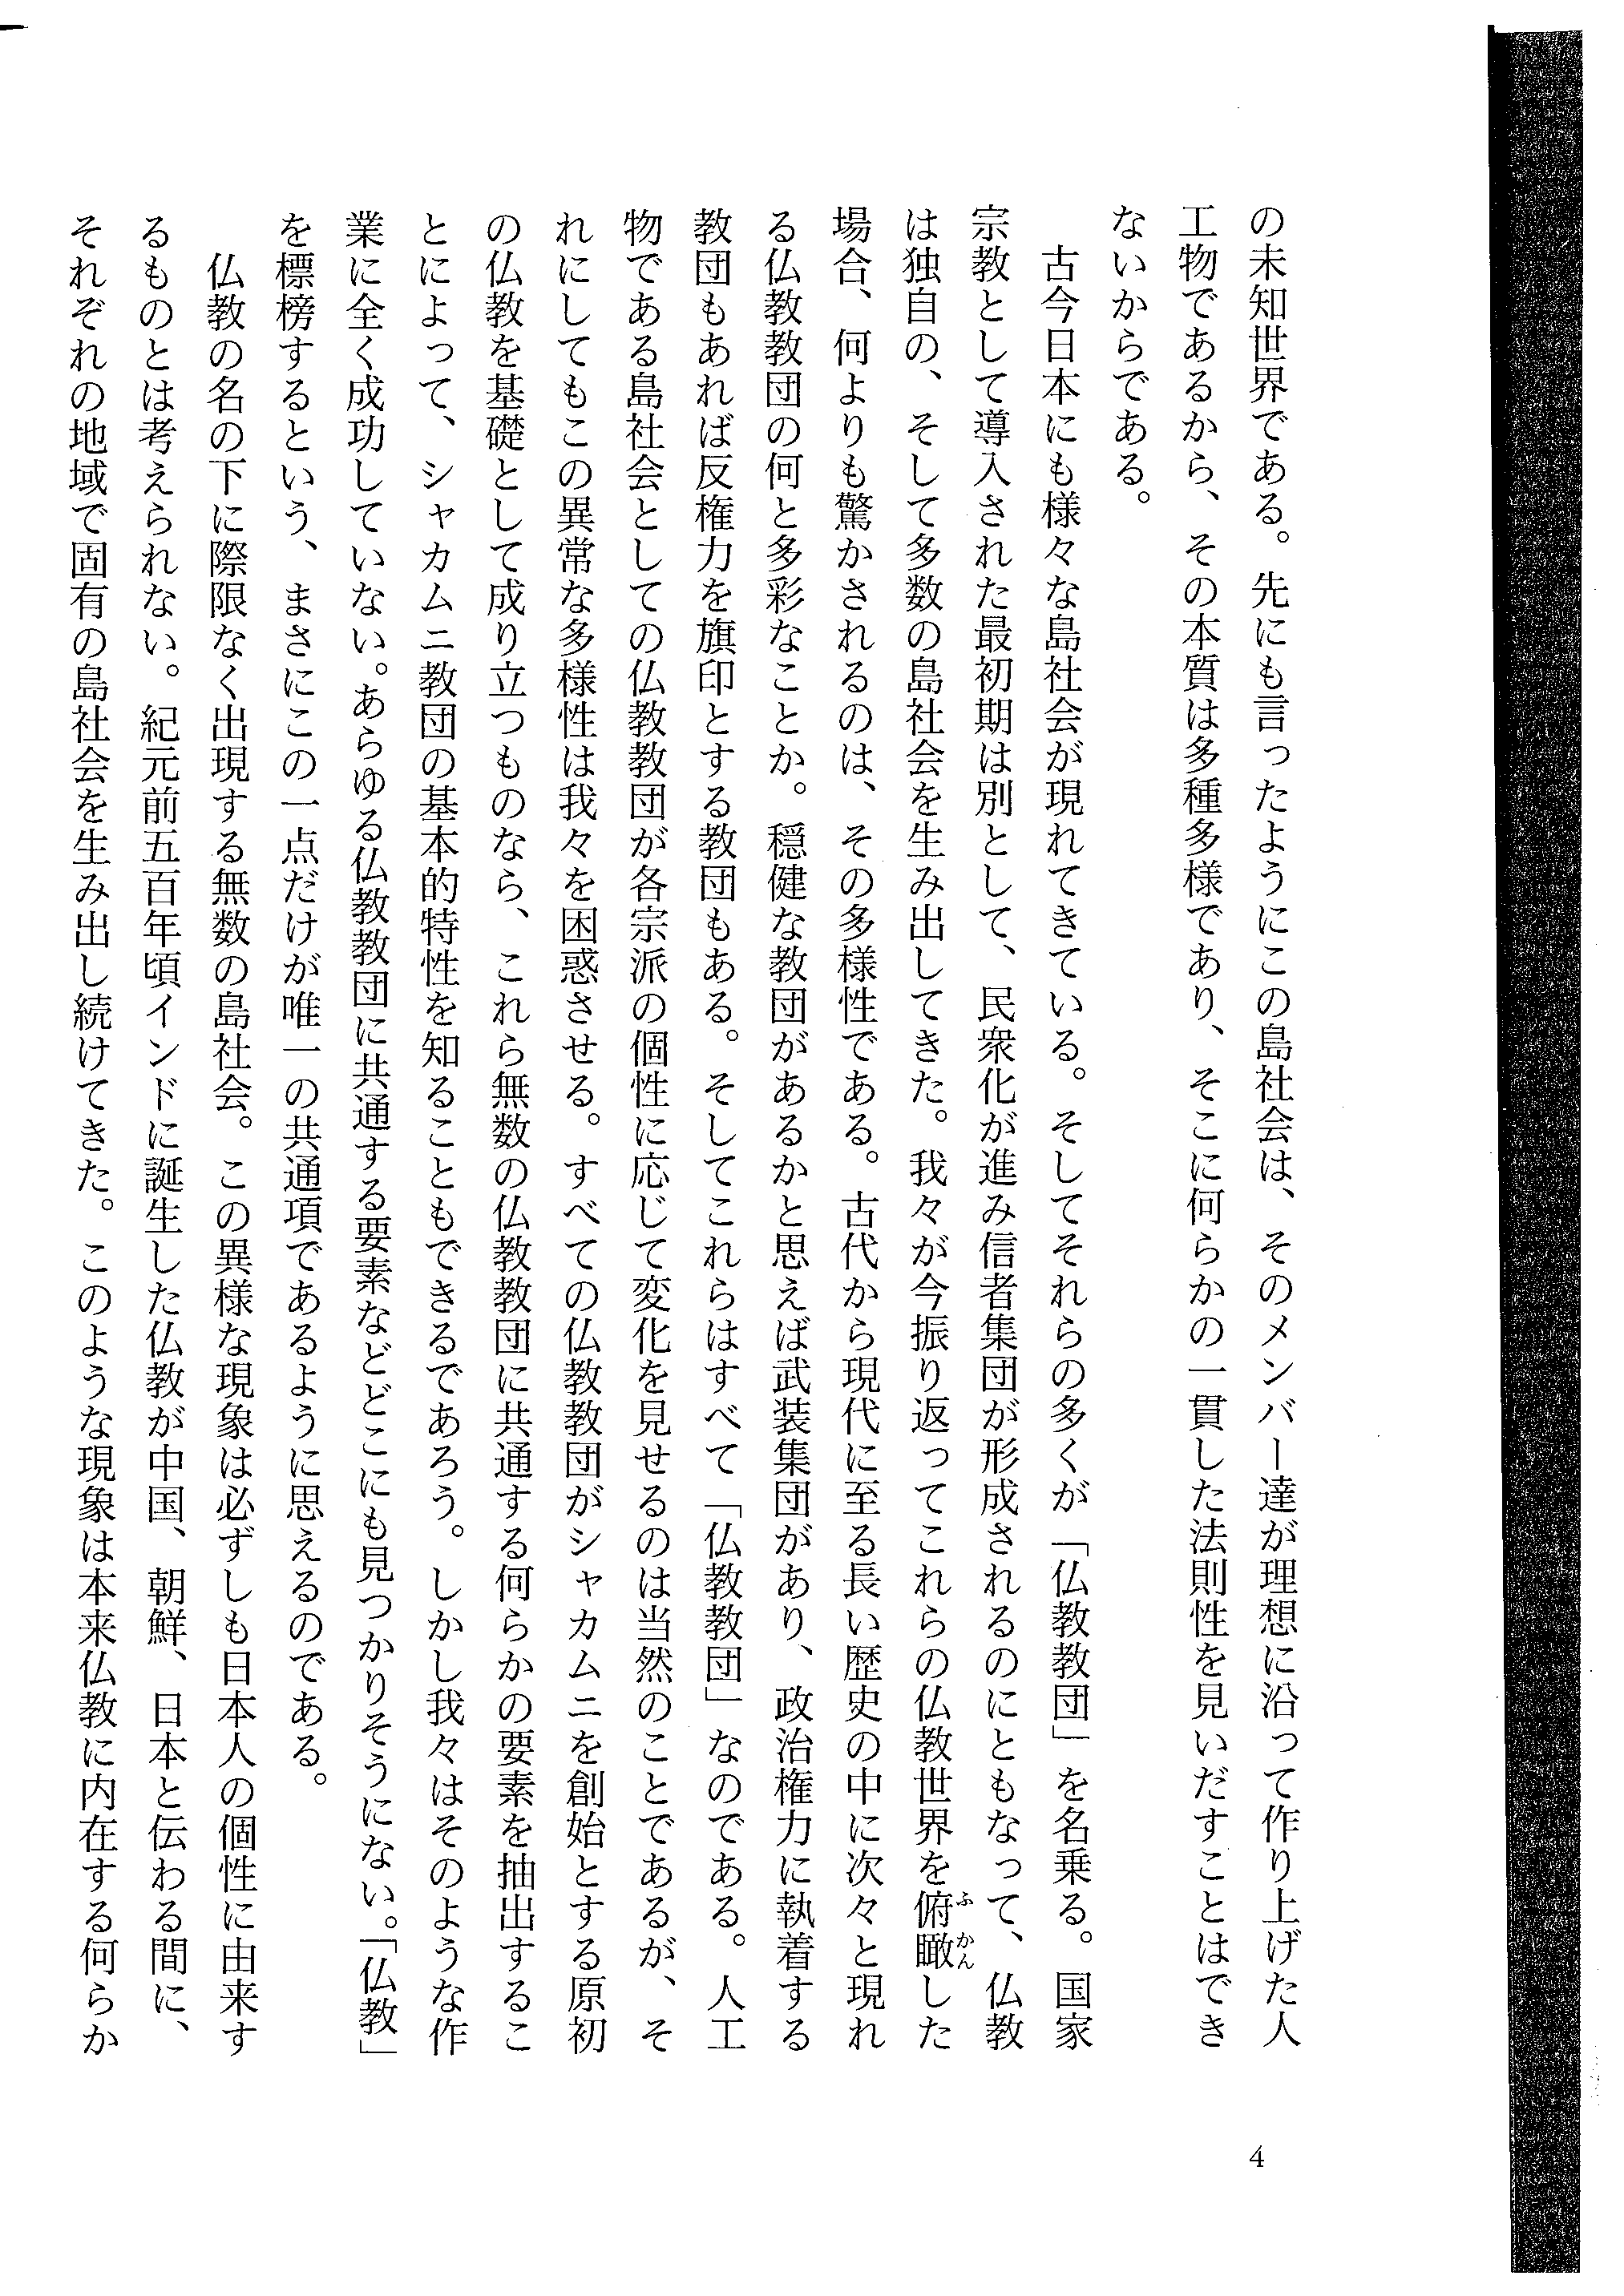 の未知世界である。先にも言ったようにこの島社会は、そのメンバー達が理想に沿って作り上げた人
工物であるから、その本質は多種多様であり、そこに何らかの一貫した法則性を見いだすことはでき
ないからである。
古今日本にも様々な島社会が現れてきている。そしてそれらの多くが「仏教教団」を名乗る。国家
宗教として導入された最初期は別として、民衆化が進み信者集団が形成されるのにともなって、仏教
は独自の、そして多数の島社会を生み出してきた。我々が今振り返ってこれらの仏教世界を俯瞰した
ふかん
場合、何よりも驚かされるのは、その多様性である。古代から現代に至る長い歴史の中に次々と現れ
る仏教教団の何と多彩なことか。穏健な教団があるかと思えば武装集団があり、政治権力に執着する
教団もあれば反権力を旗印とする教団もある。そしてこれらはすべて「仏教教団」なのである。人工
物である島社会としての仏教教団が各宗派の個性に応じて変化を見せるのは当然のことであるが、そ
れにしてもこの異常な多様性は我々を困惑させる。すべての仏教教団がシャカムニを創始とする原初
の仏教を基礎として成り立つものなら、これら無数の仏教教団に共通する何らかの要素を抽出するこ
とによって、シャカムニ教団の基本的特性を知ることもできるであろう。しかし我々はそのような作
業に全く成功していない。あらゆる仏教教団に共通する要素などどこにも見つかりそうにない。「仏教」
を標榜するという、まさにこの一点だけが唯一の共通項であるように思えるのである。
仏教の名の下に際限なく出現する無数の島社会。この異様な現象は必ずしも日本人の個性に由来す
るものとは考えられない。紀元前五百年頃インドに誕生した仏教が中国、朝鮮、日本と伝わる間に、
それぞれの地域で固有の島社会を生み出し続けてきた。このような現象は本来仏教に内在する何らか
4